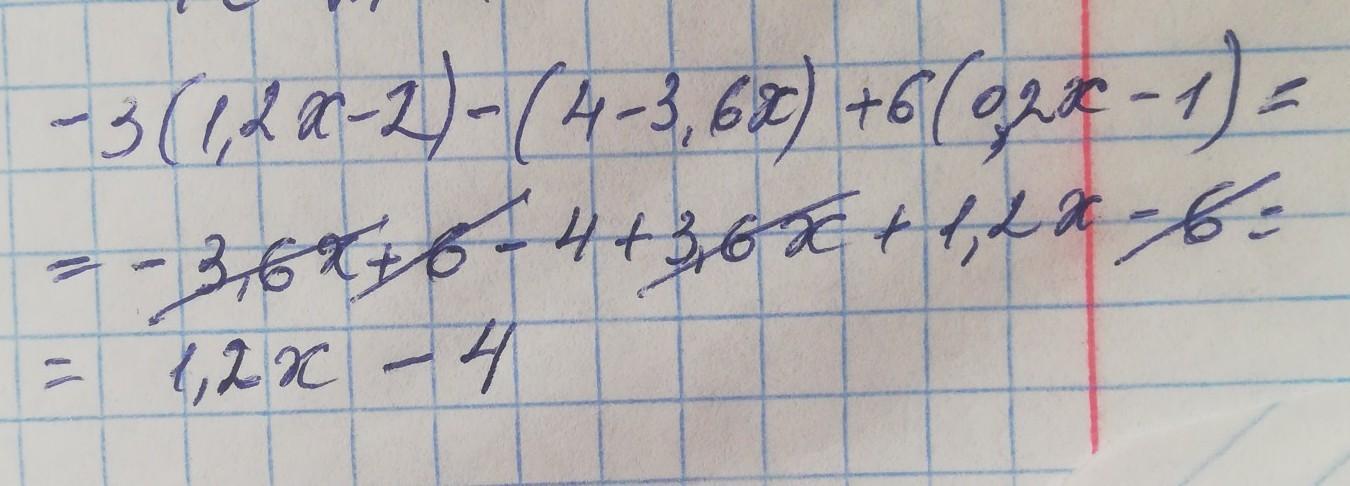 -3(1,2x-2)-(4-3,6x)+6(0,2x-1)=
=-3,6x+6-4+3,6x+1,2x-6=
= 1,2x - 4